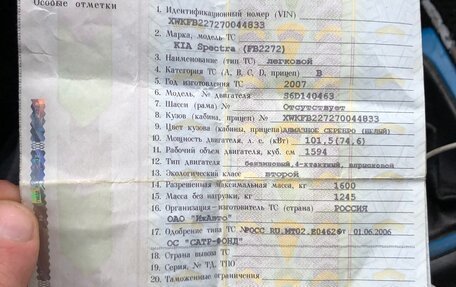 Особые отметки
1. Идентификационный номер (VIN)
XWKFB227270044833
2. Марка, модель ТС
KIA Spectra (FB2272)
3. Наименование (тип ТС) легковой
4. Категория ТС (А, В, С, D, прицеп) B
5. Год изготовления ТС 2007
6. Модель, № двигателя S6D140463
7. Шасси (рама) № Отсутствует
8. Кузов (кабина, прицеп) № XWKFB227270044833
9. Цвет кузова (кабины, прицепа) АЛМАЗНОЕ СЕРЕБРО (БЕЛЫЙ)
10. Мощность двигателя, л. с. (кВт) 101,5(74,6)
11. Рабочий объем двигателя, куб. см 1594
12. Тип двигателя бензиновый,4-хтактный, впрысковой
13. Экологический класс второй
14. Разрешенная максимальная масса, кг 1600
15. Масса без нагрузки, кг 1245
16. Организация-изготовитель ТС (страна) РОССИЯ
ОАО "ИжАвто"
17. Одобрение типа ТС № РОСС RU.МТ02.Е04626 от 01.06.2006
ОС "САТР-ФОНД"
18. Страна вывоза ТС
19. Серия, № ТД, ТПО
20. Таможенные ограничения